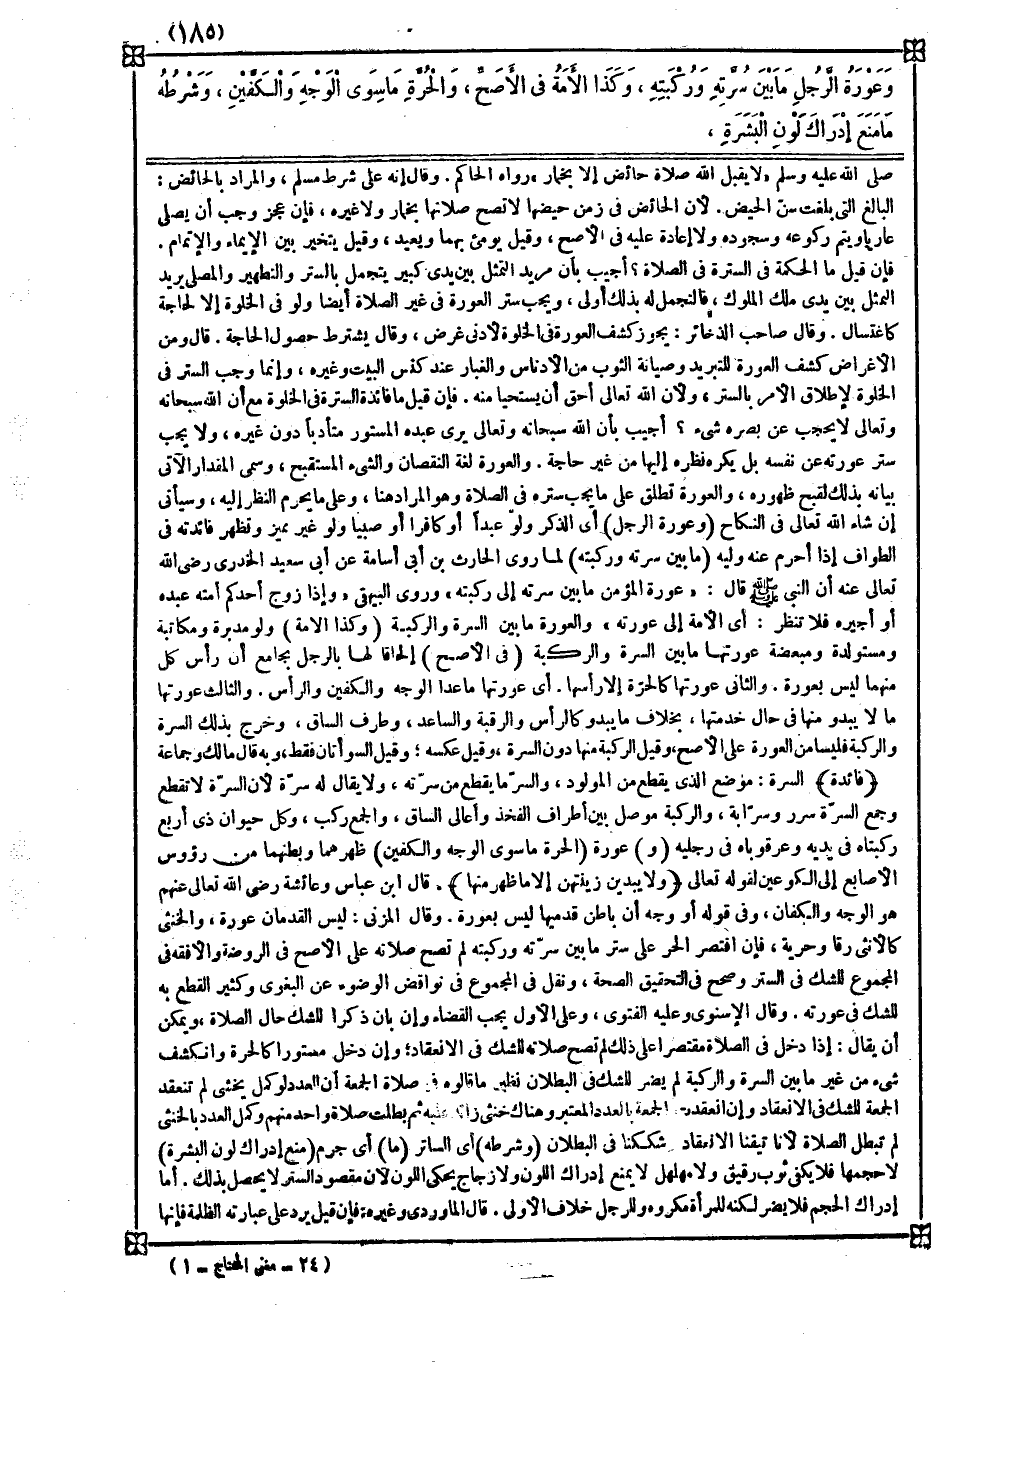 (١٨٥)
وَعَوْرَةُ الرَّجُلِ مَابَيْنَ سُرَّتِهِ وَرُكْبَتِهِ ، وَكَذَا الأَمَةُ فى الأَصَحِّ ، وَالْحُرَّةِ مَاسِوَى الْوَجْهِ وَالْكَفَّيْنِ ، وَشَرْطُهُ
مَامَنَعَ إِدْرَاكَ لَوْنِ الْبَشَرَةِ ،
صلى الله عليه وسلم «لايقبل الله صلاة حائض إلا بخمار» رواه الحاكم . وقال إنه على شرط مسلم ، والمراد بالحائض :
البالغ التى بلغت سن الحيض . لأن الحائض فى زمن حيضها لاتصح صلاتها بخمار ولاغيره ، فإن عجز وجب أن يصلى
عاريا ويتم ركوعه وسجوده ولا إعادة عليه فى الأصح ، وقيل يومئ بهما ويعيد ، وقيل يتخير بين الإيماء والإتمام .
فإن قيل ما الحكمة فى السترة فى الصلاة ؟ أجيب بأن مريد التمثل بين يدى كبير يتجمل بالستر والتطهير والمصلى يريد
التمثل بين يدى ملك الملوك ، فالتجمل له بذلك أولى ، ويجب ستر العورة فى غير الصلاة أيضا ولو فى الخلوة إلا لحاجة
كاغتسال . وقال صاحب الذخائر : يجوز كشف العورة فى الخلوة لأدنى غرض ، وقال يشترط حصول الحاجة . قال ومن
الأغراض كشف العورة للتبريد وصيانة الثوب من الأدناس والغبار عند كنس البيت وغيره ، وإنما وجب الستر فى
الخلوة لإطلاق الأمر بالستر ، ولأن الله تعالى أحق أن يستحيا منه . فإن قيل ما فائدة السترة فى الخلوة مع أن الله سبحانه
وتعالى لايحجب عن بصره شىء ؟ أجيب بأن الله سبحانه وتعالى يرى عبده المستور متأدبا دون غيره ، ولا يجب
ستر عورته عن نفسه بل يكره نظره إليها من غير حاجة . والعورة لغة النقصان والشىء المستقبح ، وسمى المقدار الآتى
بيانه بذلك لقبح ظهوره ، والعورة تطلق على ما يجب ستره فى الصلاة وهو المراد هنا ، وعلى ما يحرم النظر إليه ، وسيأتى
إن شاء الله تعالى فى النكاح (وعورة الرجل) أى الذكر ولو عبداً أو كافرا أو صبيا ولو غير مميز وتظهر فائدته فى
الطواف إذا أحرم عنه وليه (ما بين سرته وركبته) لما روى الحارث بن أبى أسامة عن أبى سعيد الخدرى رضى الله
تعالى عنه أن النبى ﷺ قال : «عورة المؤمن ما بين سرته إلى ركبته» وروى البيهقى «وإذا زوج أحدكم أمته عبده
أو أجيره فلا تنظر : أى الأمة إلى عورته» والعورة ما بين السرة والركبة (وكذا الأمة) ولو مدبرة ومكاتبة
ومستولدة ومبعضة عورتها ما بين السرة والركبة (فى الأصح) إلحاقا لها بالرجل بجامع أن رأس كل
منهما ليس بعورة . والثانى عورتها كالحرة إلا رأسها . أى عورتها ماعدا الوجه والكفين والرأس . والثالث عورتها
ما لا يبدو منها فى حال خدمتها ، بخلاف ما يبدو كالرأس والرقبة والساعد ، وطرف الساق ، وخرج بذلك السرة
والركبة فليسا من العورة على الأصح ، وقيل الركبة منها دون السرة ، وقيل عكسه ؛ وقيل السوأتان فقط ، وبه قال مالك وجماعة
﴿فائدة﴾ السرة : موضع الذى يقطع من المولود ، والسرّ ما يقطع من سرّته ، ولا يقال له سرّة لأن السرّة لاتقطع
وجمع السرّة سرر وسرّاية ، والركبة موصل بين أطراف الفخذ وأعالى الساق ، والجمع ركب ، وكل حيوان ذى أربع
ركبتاه فى يديه وعرقوباه فى رجليه (و) عورة (الحرة ماسوى الوجه والكفين) ظهرهما وبطنهما من رؤوس
الأصابع إلى الكوعين لقوله تعالى ﴿ولايبدين زينتهن إلاما ظهر منها﴾ . قال ابن عباس وعائشة رضى الله تعالى عنهم
هو الوجه والكفان ، وفى قوله أو وجه أن باطن قدميها ليس بعورة . وقال المزنى : ليس القدمان عورة ، والخنثى
كالأنثى رقا وحرية ، فإن اقتصر الحر على ستر ما بين سرّته وركبته لم تصح صلاته على الأصح فى الروضة والأفقه فى
المجموع للشك فى الستر وصحح فى التحقيق الصحة ، ونقل فى المجموع فى نواقض الوضوء عن البغوى وكثير القطع به
للشك فى عورته . وقال الإسنوى وعليه الفتوى ، وعلى الأول يجب القضاء وإن بان ذكرا للشك حال الصلاة ، ويمكن
أن يقال : إذا دخل فى الصلاة مقتصرا على ذلك لم تصح صلاته للشك فى الانعقاد ؛ وإن دخل مستورا كالحرة وانكشف
شىء من غير ما بين السرة والركبة لم يضر للشك فى البطلان نظير ما قالوه فى صلاة الجمعة أن العدد لو كمل بخنثى لم تنعقد
الجمعة للشك فى الانعقاد وإن انعقدت الجمعة بالعدد المعتبر وهناك خنثى زائد عليه ثم بطلت صلاة واحد منهم وكمل العدد بالخنثى
لم تبطل الصلاة لأنا تيقنا الانعقاد شككنا فى البطلان (وشرطه) أى الساتر (ما) أى جرم (منع إدراك لون البشرة)
لاحجمها فلا يكفى ثوب رقيق ولا مهلهل لا يمنع إدراك اللون ولا زجاج يحكى اللون لأن مقصود الستر لا يحصل بذلك . أما
إدراك الحجم فلا يضر لكنه للمرأة مكروه وللرجل خلاف الأولى . قال الماوردى وغيره : فإن قيل يرد على عبارته الظلمة فإنها
(٢٤ - مغنى المحتاج - ١)